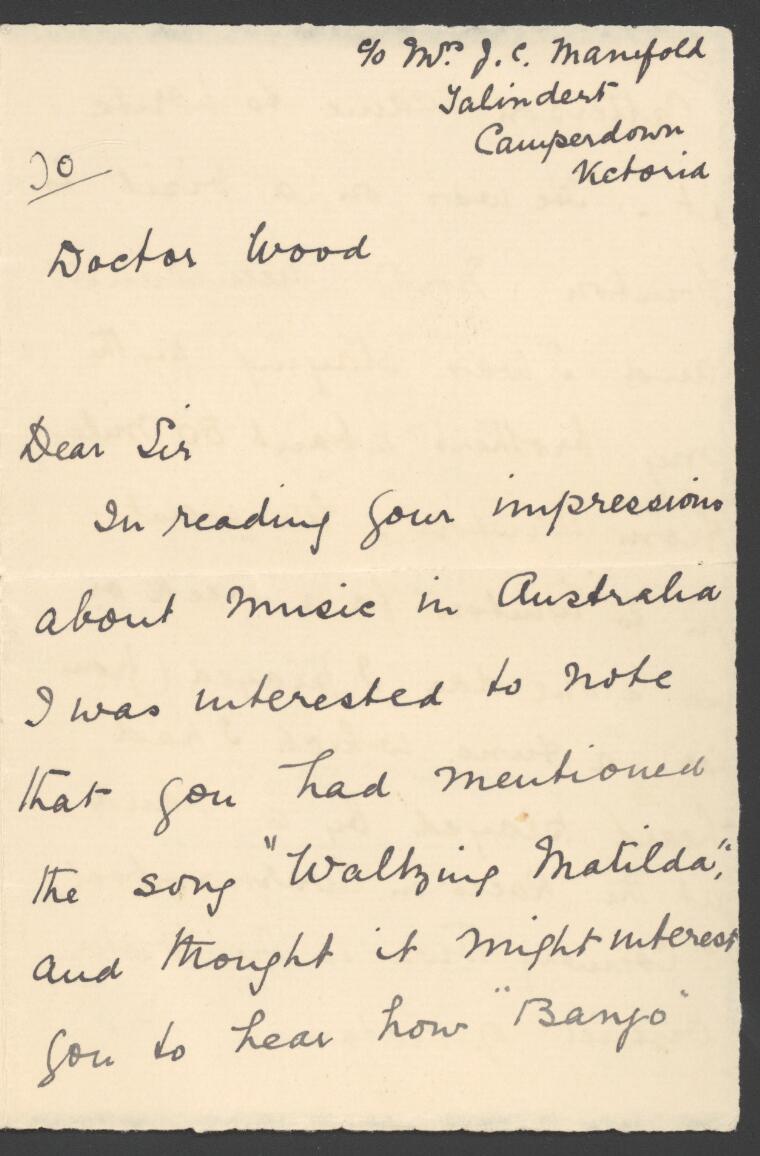 c/o Mrs J. C. Manifold
Talindert
Camperdown
Victoria
To
Doctor Wood
Dear Sir
In reading your impressions
about music in Australia
I was interested to note
that you had mentioned
the song "Waltzing Matilda",
and thought it might interest
you to hear how "Banjo"